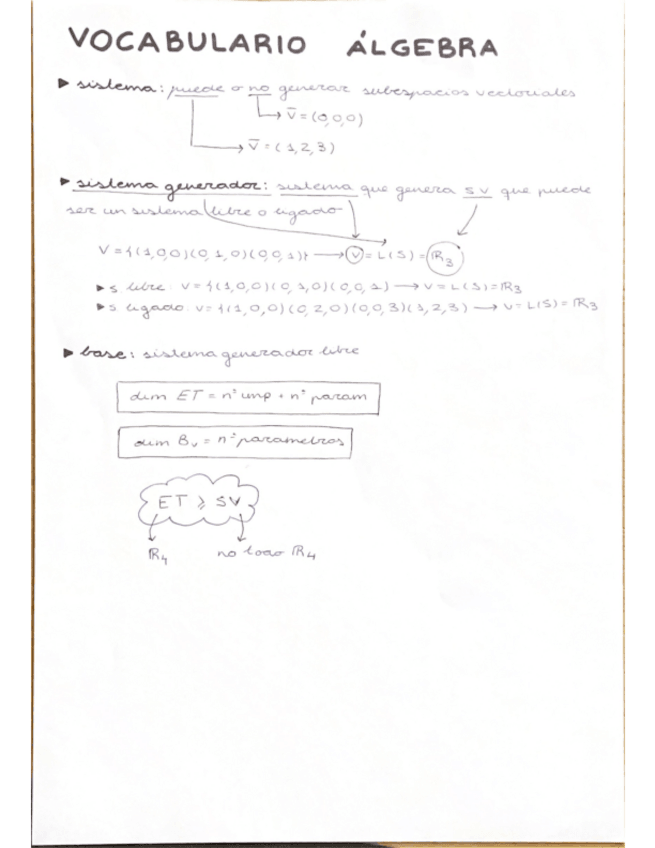 VOCABULARIO ÁLGEBRA
▶ sistema: puede o no generar subespacios vectoriales
v̄ = (0,0,0)
v̄ = (1,2,3)
▶ sistema generador: sistema que genera SV que puede
ser un sistema libre o ligado
V = {(1,0,0)(0,1,0)(0,0,1)} → V = L(S) = ℝ₃
▶ s. libre: V = {(1,0,0)(0,1,0)(0,0,1) → V = L(S) = ℝ₃
▶ s. ligado: V = {(1,0,0)(0,2,0)(0,0,3)(1,2,3) → V = L(S) = ℝ₃
▶ base: sistema generador libre
dim ET = nº imp + nº param
dim Bᵥ = nº parametros
ET ≥ SV
ℝ₄ no todo ℝ₄